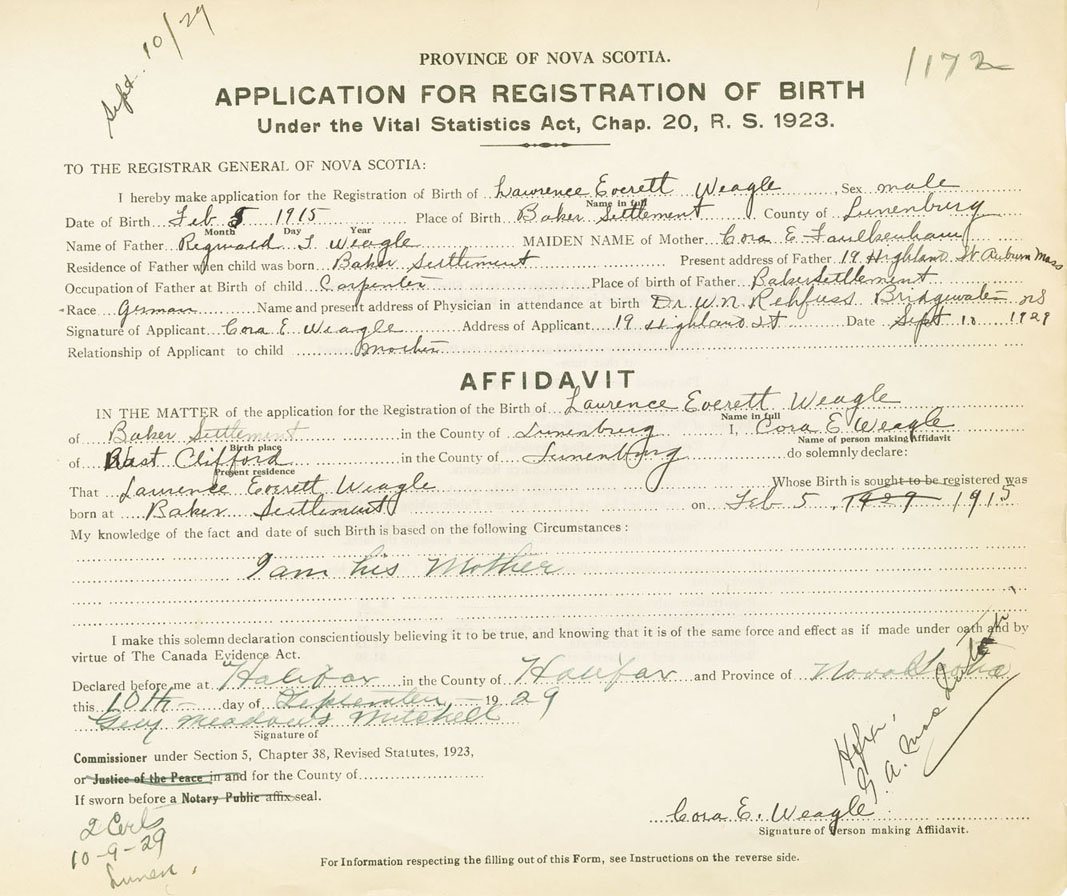 Sept. 10/29
1172
PROVINCE OF NOVA SCOTIA.
APPLICATION FOR REGISTRATION OF BIRTH
Under the Vital Statistics Act, Chap. 20, R. S. 1923.
TO THE REGISTRAR GENERAL OF NOVA SCOTIA:
I hereby make application for the Registration of Birth of Lawrence Everett Weagle, Sex male
Name in full
Date of Birth Feb 5 1915 Place of Birth Baker Settlement County of Lunenburg
Month Day Year
Name of Father Reginald I. Weagle MAIDEN NAME of Mother Cora E Faulkenham
Residence of Father when child was born Baker Settlement Present address of Father 19 Highland St Auburn Mass
Occupation of Father at Birth of child Carpenter Place of birth of Father Baker Settlement
Race German Name and present address of Physician in attendance at birth Dr. W. N. Rehfuss Bridgewater NS
Signature of Applicant Cora E Weagle Address of Applicant 19 Highland St Date Sept 10 1929
Relationship of Applicant to child Mother
AFFIDAVIT
IN THE MATTER of the application for the Registration of the Birth of Laurence Everett Weagle
Name in full
of Baker Settlement in the County of Lunenburg I, Cora E Weagle
Birth place Name of person making Affidavit
of West Clifford in the County of Lunenburg do solemnly declare:
Present residence
That Laurence Everett Weagle Whose Birth is sought to be registered was
born at Baker Settlement on Feb 5 1929 1915
My knowledge of the fact and date of such Birth is based on the following Circumstances:
I am his Mother
I make this solemn declaration conscientiously believing it to be true, and knowing that it is of the same force and effect as if made under oath and by
virtue of The Canada Evidence Act.
Declared before me at Halifax in the County of Halifax and Province of Nova Scotia
this 10th day of September 1929
Guy Meadows Mitchell
Signature of
Commissioner under Section 5, Chapter 38, Revised Statutes, 1923,
or Justice of the Peace in and for the County of
If sworn before a Notary Public affix seal.
2 Certs
10-9-29
Lunen.
Cora E. Weagle
Signature of Person making Affidavit.
For Information respecting the filling out of this Form, see Instructions on the reverse side.